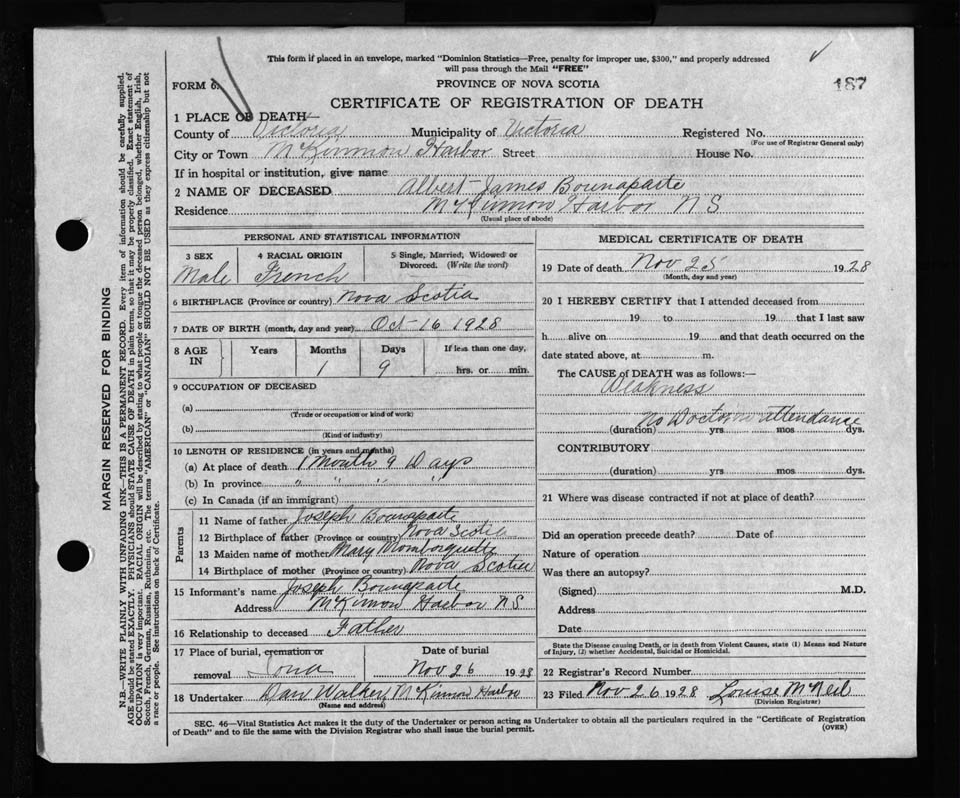 This form if placed in an envelope, marked "Dominion Statistics—Free, penalty for improper use, $300," and properly addressed
will pass through the Mail "FREE"
187
FORM 6.
PROVINCE OF NOVA SCOTIA
CERTIFICATE OF REGISTRATION OF DEATH
1 PLACE OF DEATH—
County of Victoria Municipality of Victoria Registered No.
(For use of Registrar General only)
City or Town McKinnon Harbor Street House No.
If in hospital or institution, give name
2 NAME OF DECEASED Albert James Bounaparte
Residence McKinnon Harbor N S
(Usual place of abode)
PERSONAL AND STATISTICAL INFORMATION
3 SEX 4 RACIAL ORIGIN 5 Single, Married, Widowed or
Divorced. (Write the word)
Male French
6 BIRTHPLACE (Province or country) Nova Scotia
7 DATE OF BIRTH (month, day and year) Oct 16 1928
8 AGE IN Years Months Days If less than one day,
1 9 hrs. or min.
9 OCCUPATION OF DECEASED
(a)
(Trade or occupation or kind of work)
(b)
(Kind of industry)
10 LENGTH OF RESIDENCE (in years and months)
(a) At place of death 1 Month 9 Days
(b) In province " " " "
(c) In Canada (if an immigrant)
Parents
11 Name of father Joseph Bounaparte
12 Birthplace of father (Province or country) Nova Scotia
13 Maiden name of mother Mary
14 Birthplace of mother (Province or country) Nova Scotia
15 Informant's name Joseph Bounaparte
Address McKinnon Harbor N S
16 Relationship to deceased Father
17 Place of burial, cremation or Date of burial
removal Iona Nov 26 1928
18 Undertaker Dan Walker McKinnon Harbor
(Name and address)
MEDICAL CERTIFICATE OF DEATH
19 Date of death Nov 25 1928
(Month, day and year)
20 I HEREBY CERTIFY that I attended deceased from
19 to 19 that I last saw
h alive on 19 and that death occurred on the
date stated above, at m.
The CAUSE OF DEATH was as follows:—
Weakness
No Doctor in attendance
(duration) yrs mos dys.
CONTRIBUTORY
(duration) yrs mos dys.
21 Where was disease contracted if not at place of death?
Did an operation precede death? Date of
Nature of operation
Was there an autopsy?
(Signed) M.D.
Address
Date
State the Disease causing Death, or in death from Violent Causes, state (1) Means and Nature
of Injury, (2) whether Accidental, Suicidal or Homicidal.
22 Registrar's Record Number
23 Filed Nov 26 1928 Louise McNeil
(Division Registrar)
SEC. 46—Vital Statistics Act makes it the duty of the Undertaker or person acting as Undertaker to obtain all the particulars required in the "Certificate of Registration
of Death" and to file the same with the Division Registrar who shall issue the burial permit.
(OVER)
MARGIN RESERVED FOR BINDING
N.B.—WRITE PLAINLY WITH UNFADING INK—THIS IS A PERMANENT RECORD. Every item of information should be carefully supplied.
AGE should be stated EXACTLY. PHYSICIANS should STATE CAUSE OF DEATH in plain terms, so that it may be properly classified. Exact statement of
OCCUPATION is very important. RACIAL ORIGIN will be described by stating to what people or tongue the deceased person belonged, whether English, Irish,
Scotch, French, German, Russian, Ruthenian, etc. The terms "AMERICAN" or "CANADIAN" SHOULD NOT BE USED, as they express citizenship but not
a race or people. See instructions on back of Certificate.